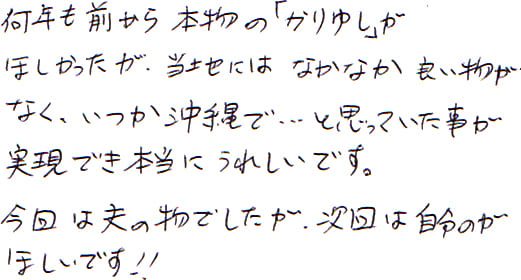 何年も前から本物の「かりゆし」が
ほしかったが、当土地には なかなか 良い物が
なく、いつか沖縄で…と思っていた事が
実現でき本当に うれしいです。
今回は夫の物でしたが、次回は自分のが
ほしいです!!